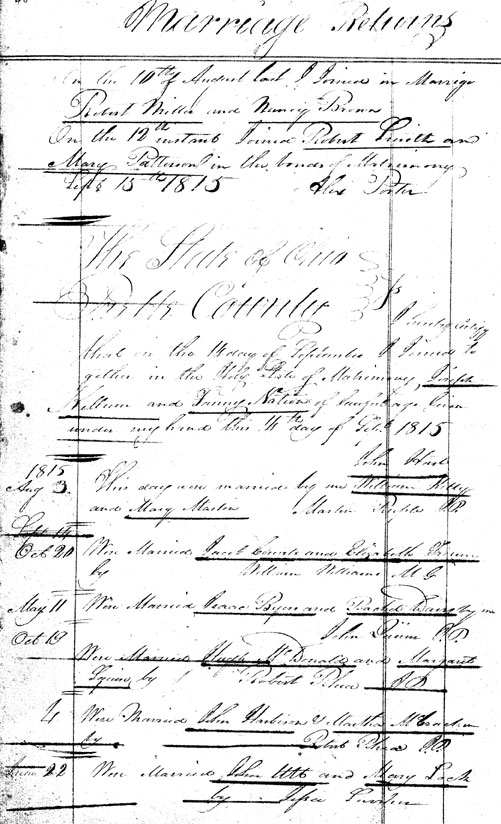 Marriage Returns
On the 10th of August last I Joined in Marriage
Robert Miller and Nancy Brown
On the 12th instant Joined Robert Smith and
Mary Patterson in the bonds of Matrimony
Sept 15th 1815 Alex Porter
The State of Ohio
Preble County
I hereby certify
that on the 14 day of September I Joined to
gether in the Holy State of Matrimony, Joseph
and of lawful age Given
under my hand this day of Sept 1815
John
1815
Aug 3. This day were married by me William Kelly
and Mary Martin Martin J.P.
Sept 14
Oct 20 Were Married Jacob and Elizabeth
by William Williams M G
May 11 Were Married Isaac and Rachel by me
Oct 19 John J.P.
Were Married Hugh McDonald and Margaret
by Robert Rhea J P
4 Were Married John Harbison & Martha McCracken
by Robt Rhea J.P.
22 Were Married John and Mary
by